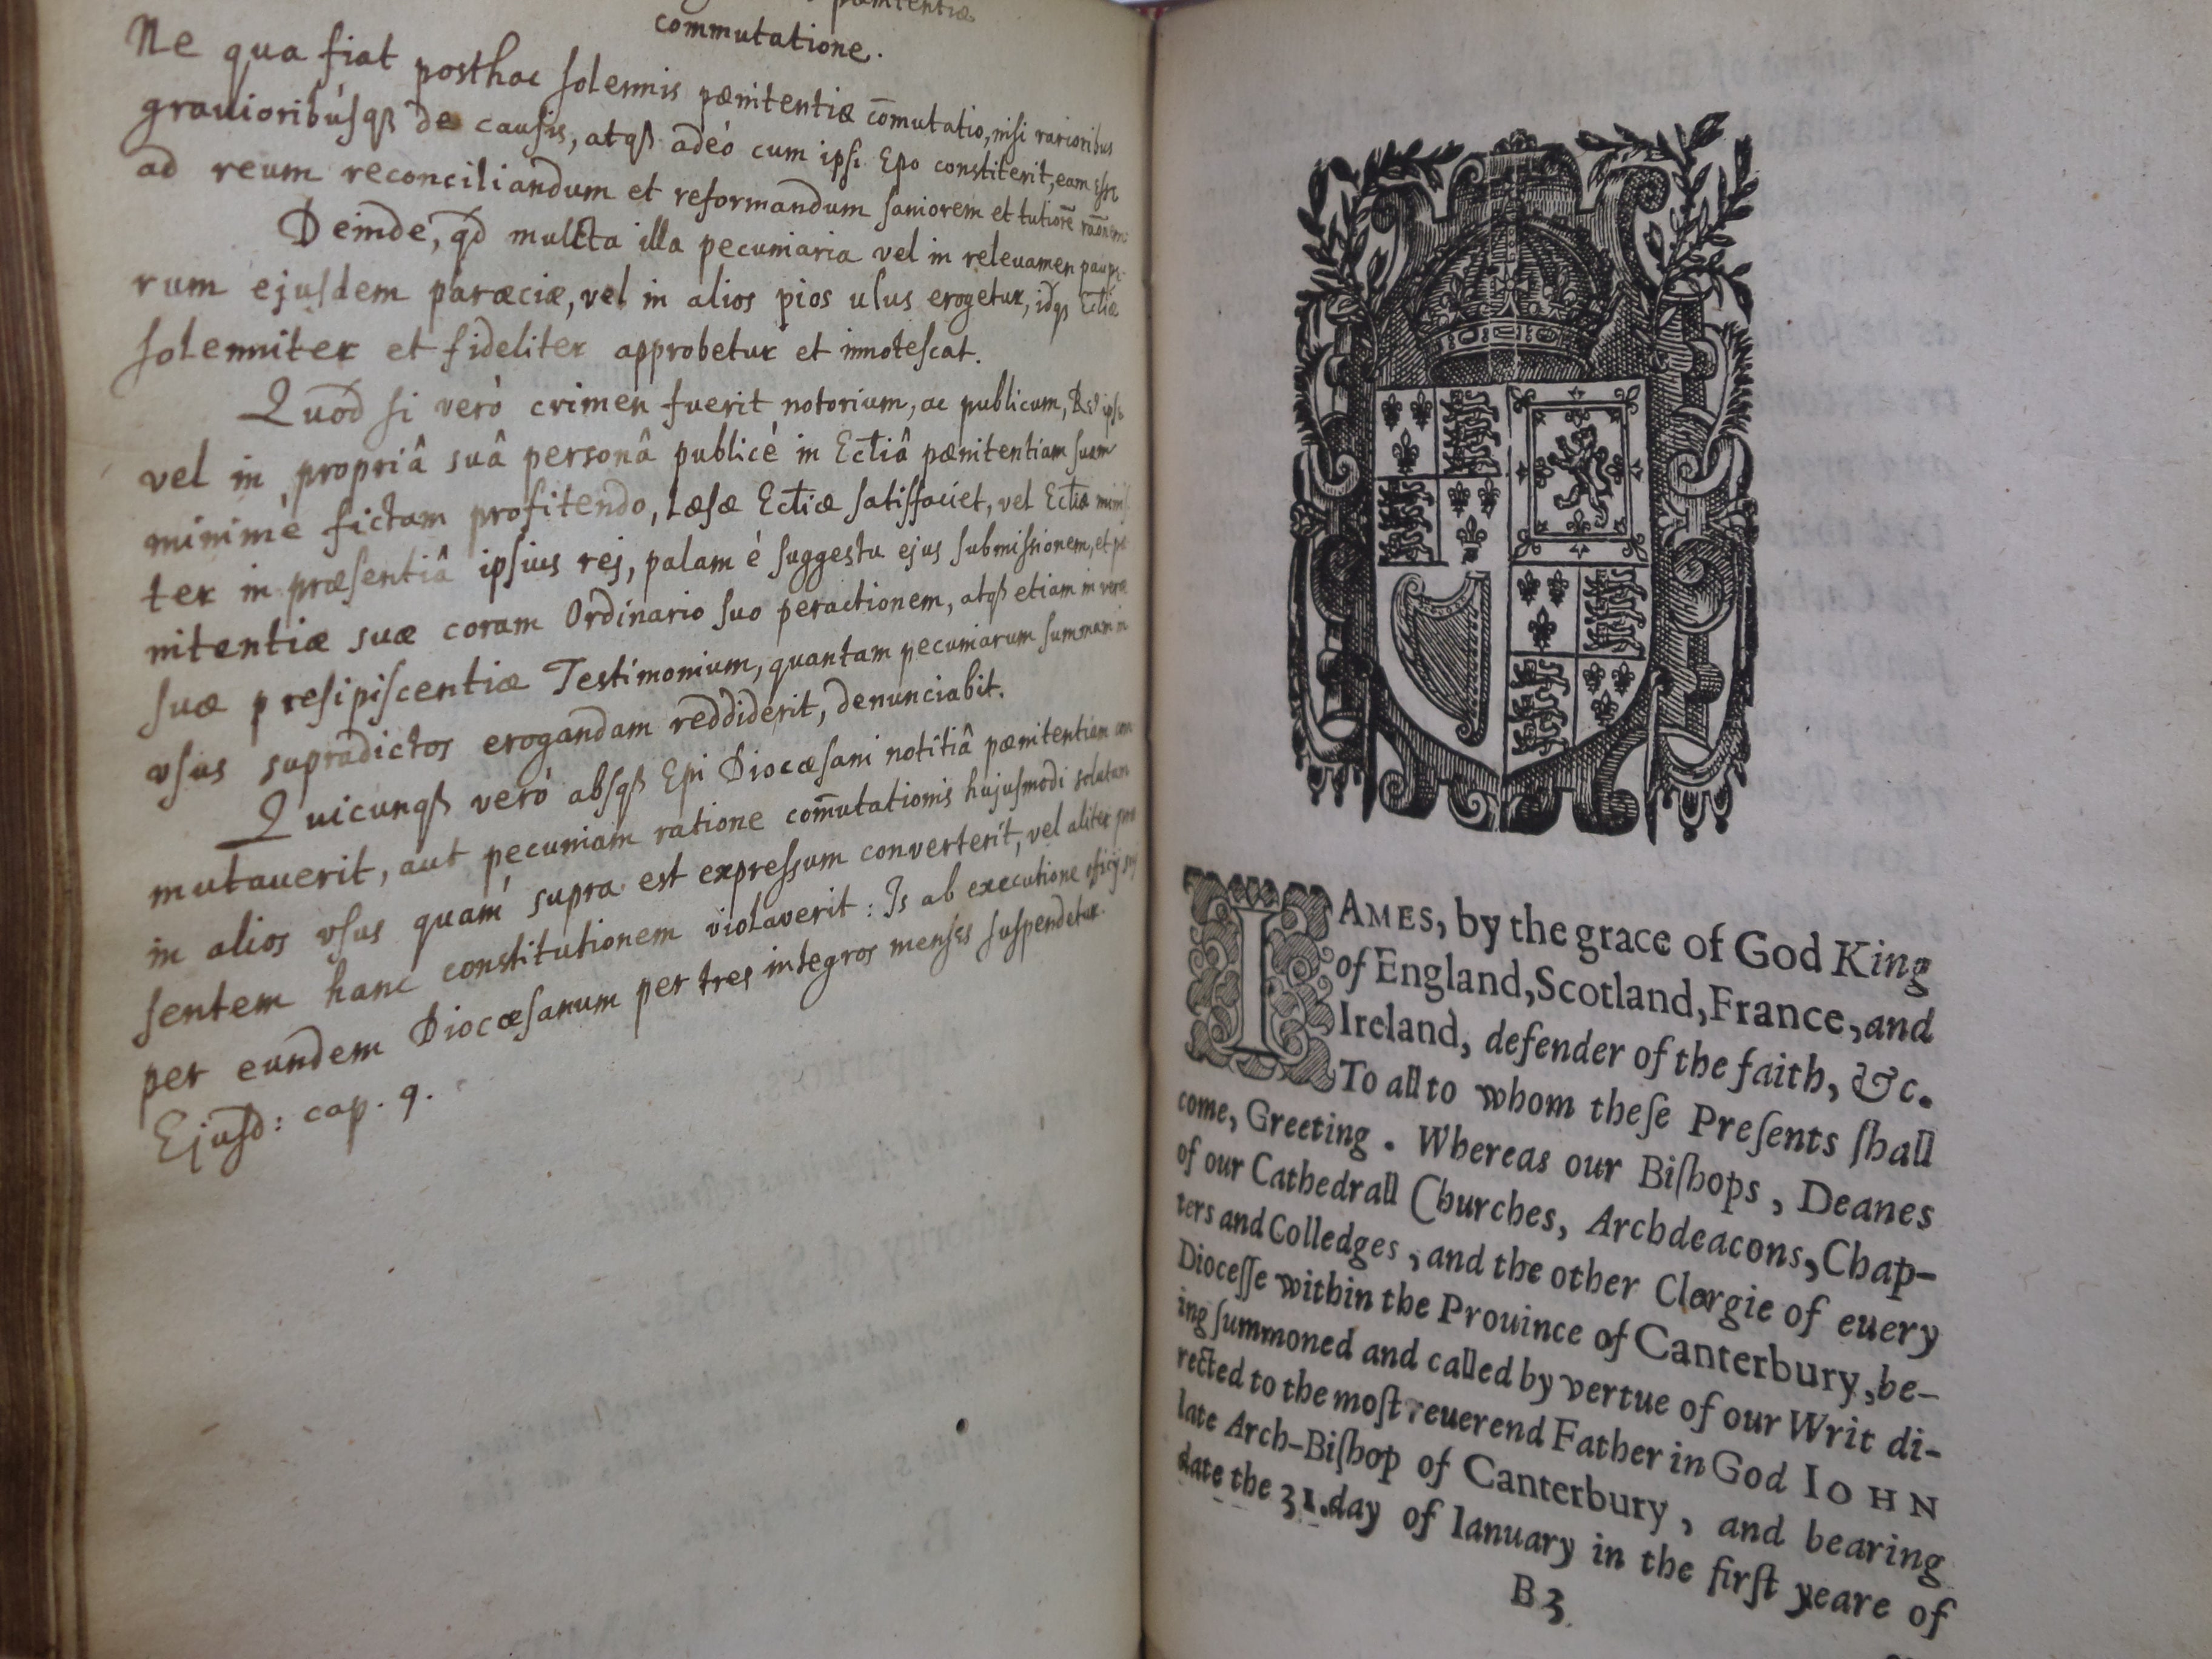 pœnitentiæ
commutatione.
Ne qua fiat posthac ſolennis pœnitentiæ com̄utatio, niſi rarioribus
grauioribúſqꝫ de cauſis, atqꝫ adeó cum ipſi Ep̄o constiterit, eam eſſe
ad reum reconciliandum et reformandum ſaniorem et tutiorē rāonem
Deinde, qd̄ mulcta illa pecuniaria vel in releuamen paupe-
rum ejuſdem parœciæ, vel in alios pios uſus erogetur, idqꝫ Eccl̄iæ
ſolenniter et fideliter approbetur et innoteſcat.
Quod ſi verò crimen fuerit notorium, ac publicum, Reꝰ ipſe
vel in propriâ suâ personâ publicè in Eccl̄iâ pœnitentiam ſuam
minimè fictam profitendo, Læſæ Eccl̄iæ ſatiſfaciet, vel Eccl̄iæ miniſ
ter in præſentiâ ipſius rej, palam è ſuggestu ejus ſubmiſſionem, et pœ
nitentiæ suæ coram Ordinario ſuo peractionem, atqꝫ etiam in veræ
ſuæ preſipiſcentiæ Testimonium, quantam pecuniarum ſummam in
vſus supradictos erogandam reddiderit, denunciabit.
Quicunqꝫ verò abſqꝫ Ep̄i Diocœſani notitiâ pœnitentiam com
mutauerit, aut pecuniam ratione com̄utationis hujuſmodi solutam
in alios vſus quàm supra est expreſſum converterit, vel aliter præ
ſentem hanc constitutionem violaverit: Is ab executione officij suj
per eundem Diocœſanum per tres integros menſes ſuſpendetur.
Ejuſd: cap. 9.
IAMES, by the grace of God King
of England, Scotland, France, and
Ireland, defender of the faith, &c.
To all to whom theſe Preſents ſhall
come, Greeting. Whereas our Biſhops, Deanes
of our Cathedrall Churches, Archdeacons, Chap-
ters and Colledges, and the other Clergie of euery
Dioceſſe within the Prouince of Canterbury, be-
ing ſummoned and called by vertue of our Writ di-
rected to the moſt reuerend Father in God IOHN
late Arch-Biſhop of Canterbury, and bearing
date the 31. day of Ianuary in the firſt yeare of
B3